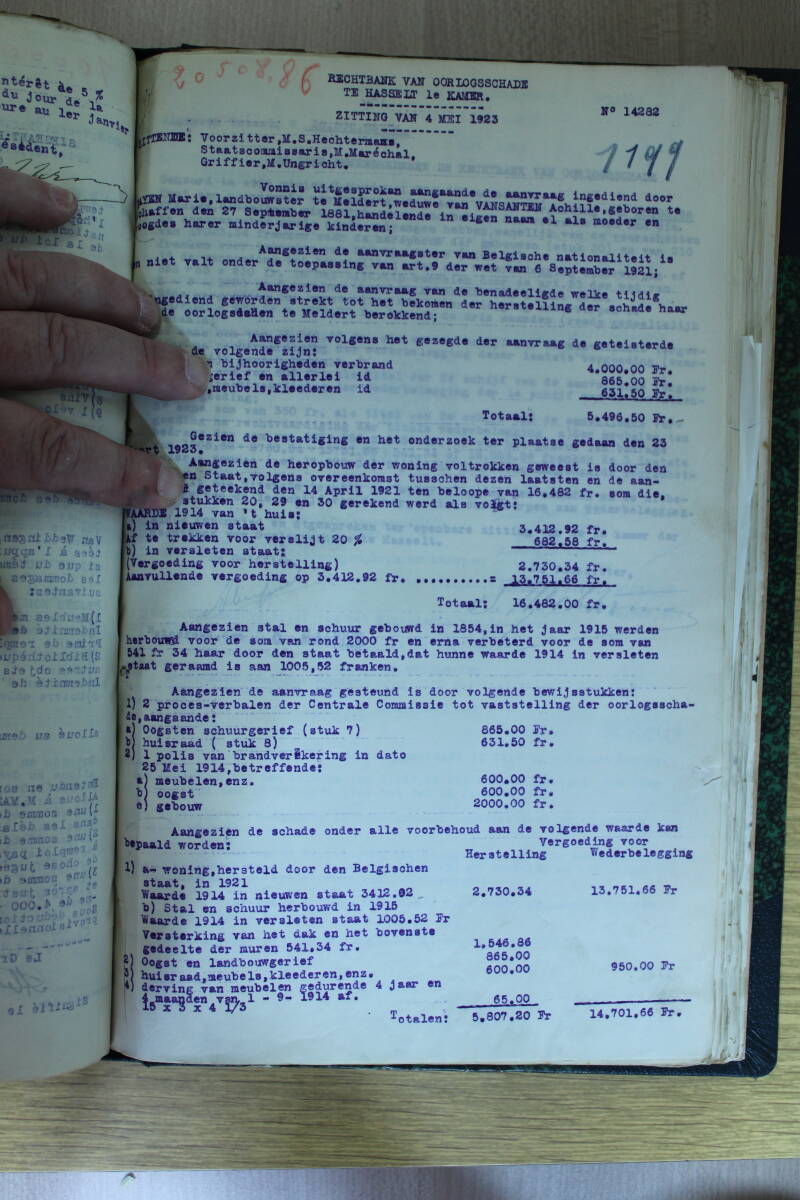 ntérêt àe 5 %
du jour de la
ure au 1er janvier
ésident,
20508.86
RECHTBANK VAN OORLOGSSCHADE
TE HASSELT 1e KAMER.
ZITTING VAN 4 MEI 1923
N° 14282
1199
ITTENDE: Voorzitter,M.S.Hechtermans,
Staatscommissaris,M.Maréchal,
Griffier,M.Ungricht.
Vonnis uitgesproken aangaande de aanvraag ingediend door
AYEN Marie,landbouwster te Meldert,weduwe van VANSANTEN Achille,geboren te
chaffen den 27 September 1881,handelende in eigen naam el als moeder en
oogdes harer minderjarige kinderen;
Aangezien de aanvraagster van Belgische nationaliteit is
n niet valt onder de toepassing van art.9 der wet van 6 September 1921;
Aangezien de aanvraag van de benadeeligde welke tijdig
ingediend geworden strekt tot het bekomen der herstelling der schade haar
de oorlogsdaden te Meldert berokkend;
Aangezien volgens het gezegde der aanvraag de geteisterde
de volgende zijn:
n bijhoorigheden verbrand 4.000.00 Fr.
gerief en allerlei id 865.00 Fr.
,meubels,kleederen id 631.50 Fr.
Totaal: 5.496.50 Fr.-
Gezien de bestatiging en het onderzoek ter plaatse gedaan den 23
art 1923.
Aangezien de heropbouw der woning voltrokken geweest is door den
en Staat,volgens overeenkomst tusschen dezen laatsten en de aan-
geteekend den 14 April 1921 ten beloope van 16.482 fr. som die,
stukken 20, 29 en 30 gerekend werd als volgt:
WAARDE 1914 van 't huis:
a) in nieuwen staat 3.412.92 fr.
Af te trekken voor verslijt 20 % 682.58 fr.
b) in versleten staat:
(Vergoeding voor herstelling) 2.730.34 fr.
Aanvullende vergoeding op 3.412.92 fr. ..........= 13.751.66 fr.
Totaal: 16.482.00 fr.
Aangezien stal en schuur gebouwd in 1854,in het jaar 1915 werden
herbouwd voor de som van rond 2000 fr en erna verbeterd voor de som van
541 fr 34 haar door den staat betaald,dat hunne waarde 1914 in versleten
staat geraamd is aan 1005,52 franken.
Aangezien de aanvraag gesteund is door volgende bewijsstukken:
1) 2 proces-verbalen der Centrale Commissie tot vaststelling der oorlogsscha-
de,aangaande:
a) Oogsten schuurgerief (stuk 7) 865.00 Fr.
b) huisraad ( stuk 8) 631.50 fr.
2) 1 polis van brandverekering in dato
25 Mei 1914,betreffende:
a) meubelen,enz. 600.00 fr.
b) oogst 600.00 fr.
c) gebouw 2000.00 fr.
Aangezien de schade onder alle voorbehoud aan de volgende waarde kan
bepaald worden:
Vergoeding voor
Herstelling Wederbelegging
1) a- woning,hersteld door den Belgischen
staat, in 1921
Waarde 1914 in nieuwen staat 3412.92 2.730.34 13.751.66 Fr
b) Stal en schuur herbouwd in 1915
Waarde 1914 in versleten staat 1005.52 Fr
Versterking van het dak en het bovenste
gedeelte der muren 541.34 fr. 1.546.86
2) Oogst en landbouwgerief 865.00
3) huisraad,meubels,kleederen,enz. 600.00 950.00 Fr
4) derving van meubelen gedurende 4 jaar en
4 maanden van 1 - 9- 1914 af.
15 x 3 x 4 1/3 65.00
Totalen: 5.807.20 Fr 14.701.66 Fr.